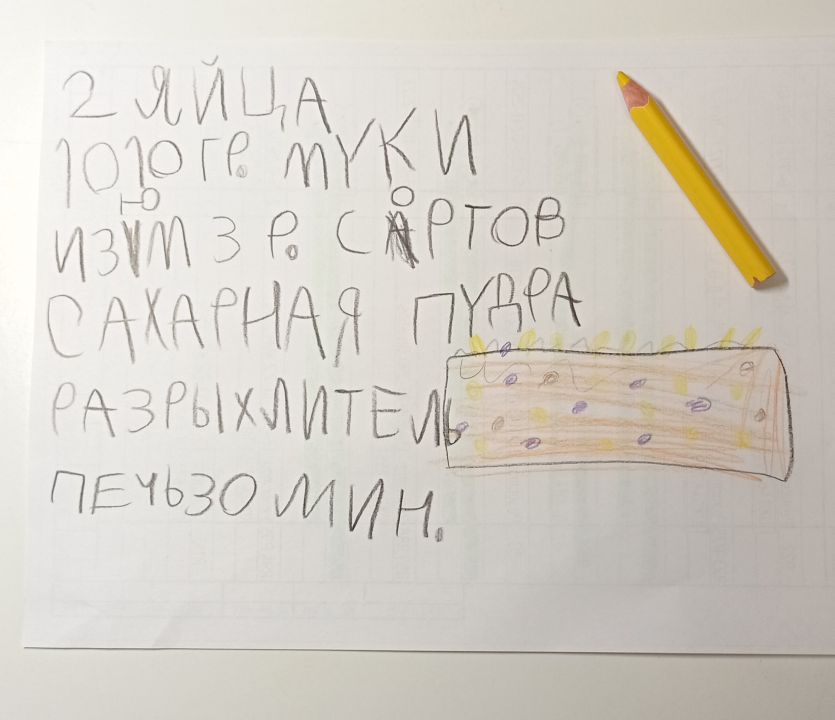 2 ЯЙЦА
1010 ГР. МУКИ
ИЗЮМ 3 Р. СОРТОВ
САХАРНАЯ ПУДРА
РАЗРЫХЛИТЕЛЬ
ПЕЧЬ30 МИН.